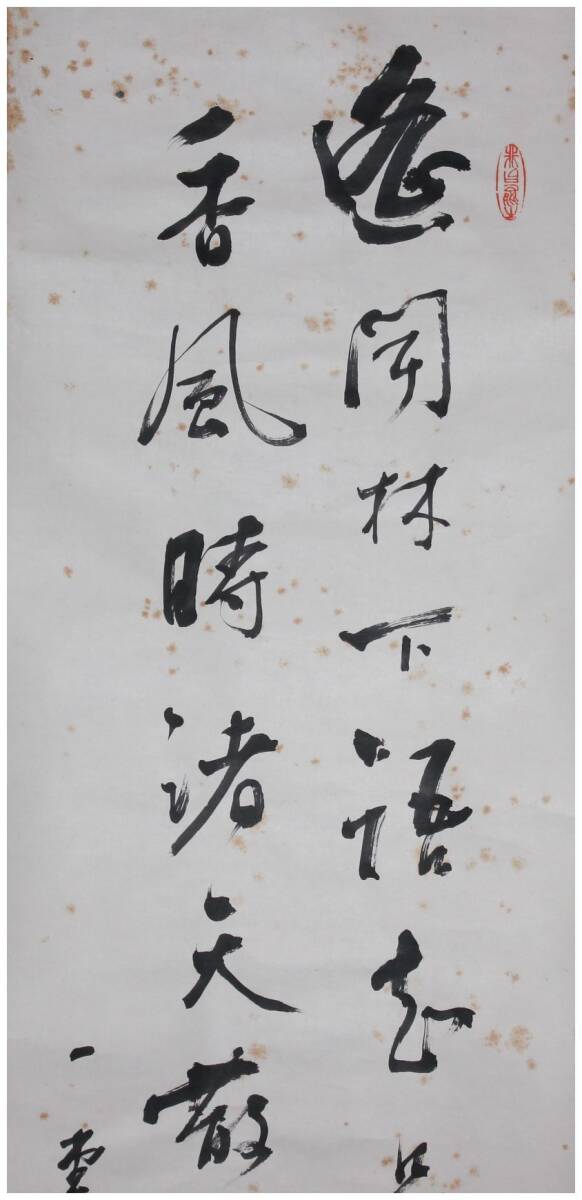 遙聞林下語知
香風時諸天散
一堂